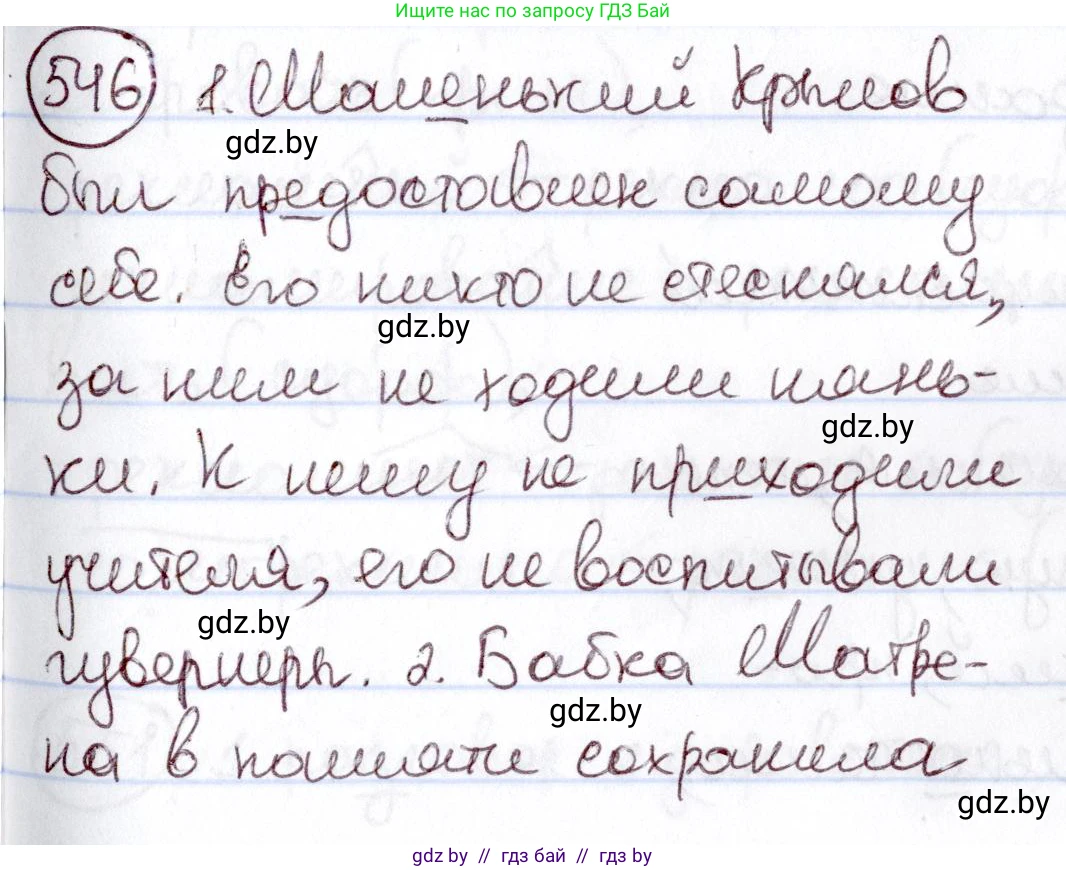 Ищите нас по запросу ГДЗ Бай
546 1. Маленький Крылов
gdz.by
был предоставлен самому
себе. Его никто не стеснялся,
gdz.by
за ним не ходили нянь-
gdz.by
ки. К нему не приходили
учителя, его не воспитывали
gdz.by
гувернеры. 2. Бабка Матре-
gdz.by
на в памяти сохранила
gdz.by
gdz.by // гдз бай // гдз by